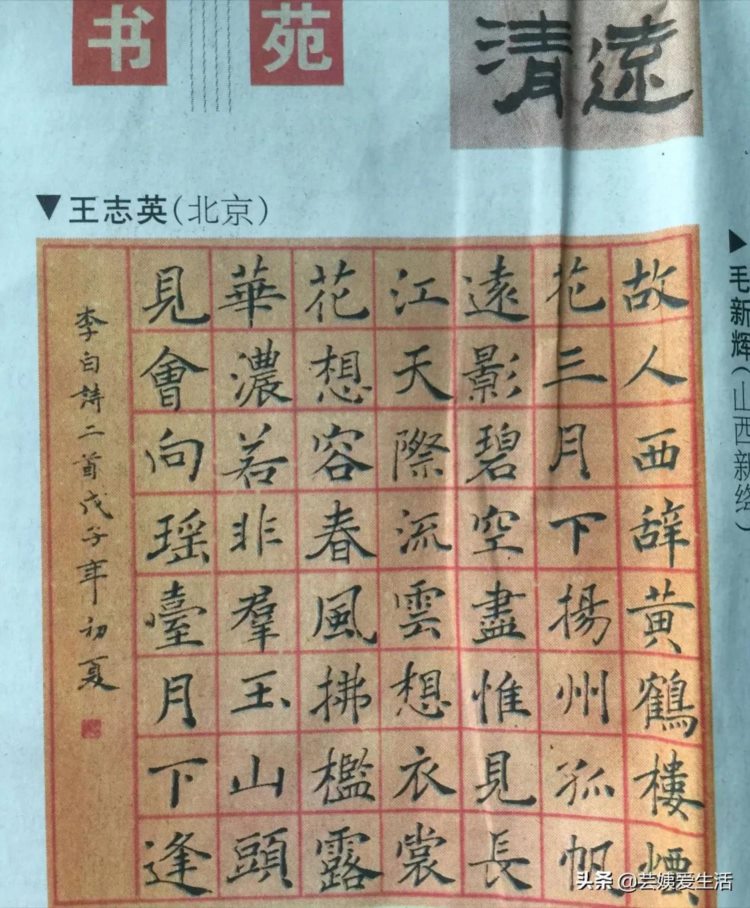 书苑
清遠
▼王志英(北京)
故人西辞黄鶴樓煙
花三月下揚州孤帆
遠影碧空盡惟見長
江天際流雲想衣裳
花想容春風拂檻露
華濃若非羣玉山頭
見會向瑶臺月下逢
李白詩二首戊子年初夏
▶毛新辉(山西新绛)
头条@芸姨爱生活